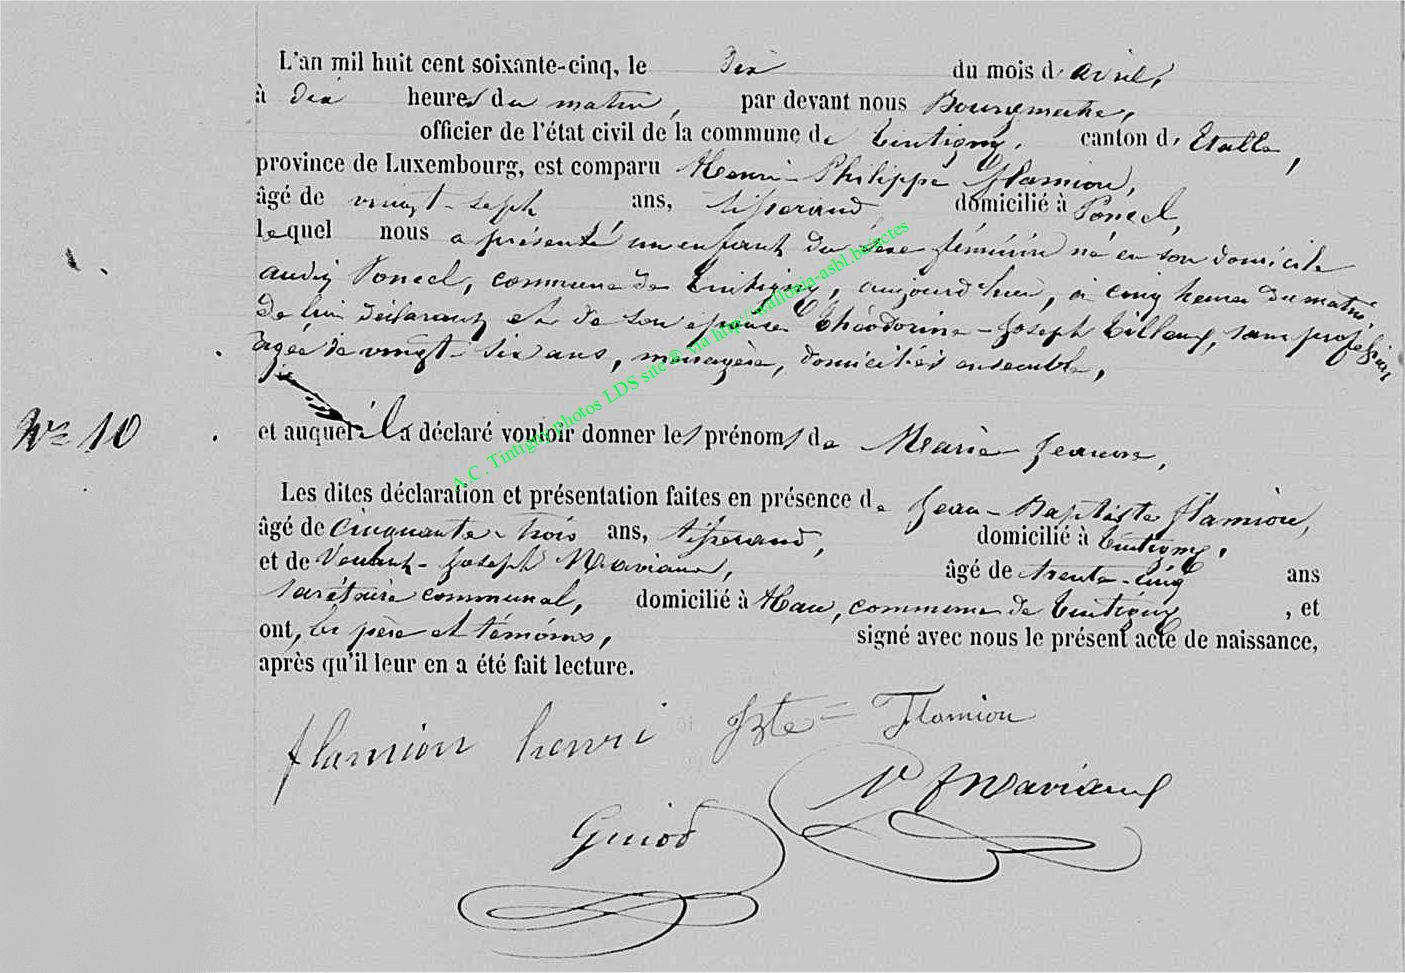 L'an mil huit cent soixante-cinq, le dix du mois d'avril,
à dix heures du matin, par devant nous Bourgmestre,
officier de l'état civil de la commune de Tintigny, canton d'Etalle,
province de Luxembourg, est comparu Henri-Philippe Flamion,
âgé de vingt-sept ans, tisserand domicilié à Poncel,
lequel nous a présenté un enfant du sexe féminin né en son domicile
audit Poncel, commune de Tintigny, aujourd'hui, à cinq heures du matin
de lui déclarant et de son épouse Théodorine-Joseph, sans profession
âgée de vingt-six ans, ménagère, domiciliés ensemble,
N° 10
et auquel il a déclaré vouloir donner les prénoms de Marie-Jeanne,
Les dites déclaration et présentation faites en présence de Jean-Baptiste Flamion,
âgé de cinquante-trois ans, tisserand, domicilié à Tintigny,
et de Joseph, âgé de trente-cinq ans
secrétaire communal, domicilié à Han, commune de Tintigny, et
ont, les père et témoins, signé avec nous le présent acte de naissance,
après qu'il leur en a été fait lecture.
flamion henri Jbte = Flamion
Guiod
A.C. Tintigny photos LDS site © via http://wallonia-asbl.be/actes